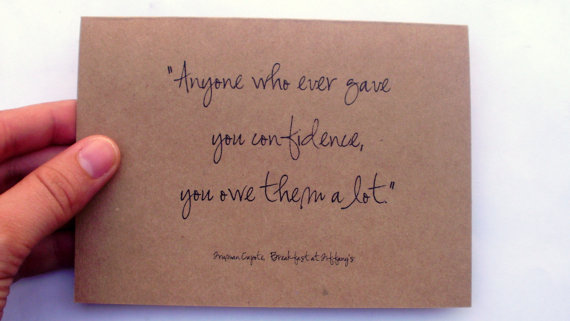 "Anyone who ever gave
you confidence,
you owe them a lot."
Truman Capote, Breakfast at Tiffany's